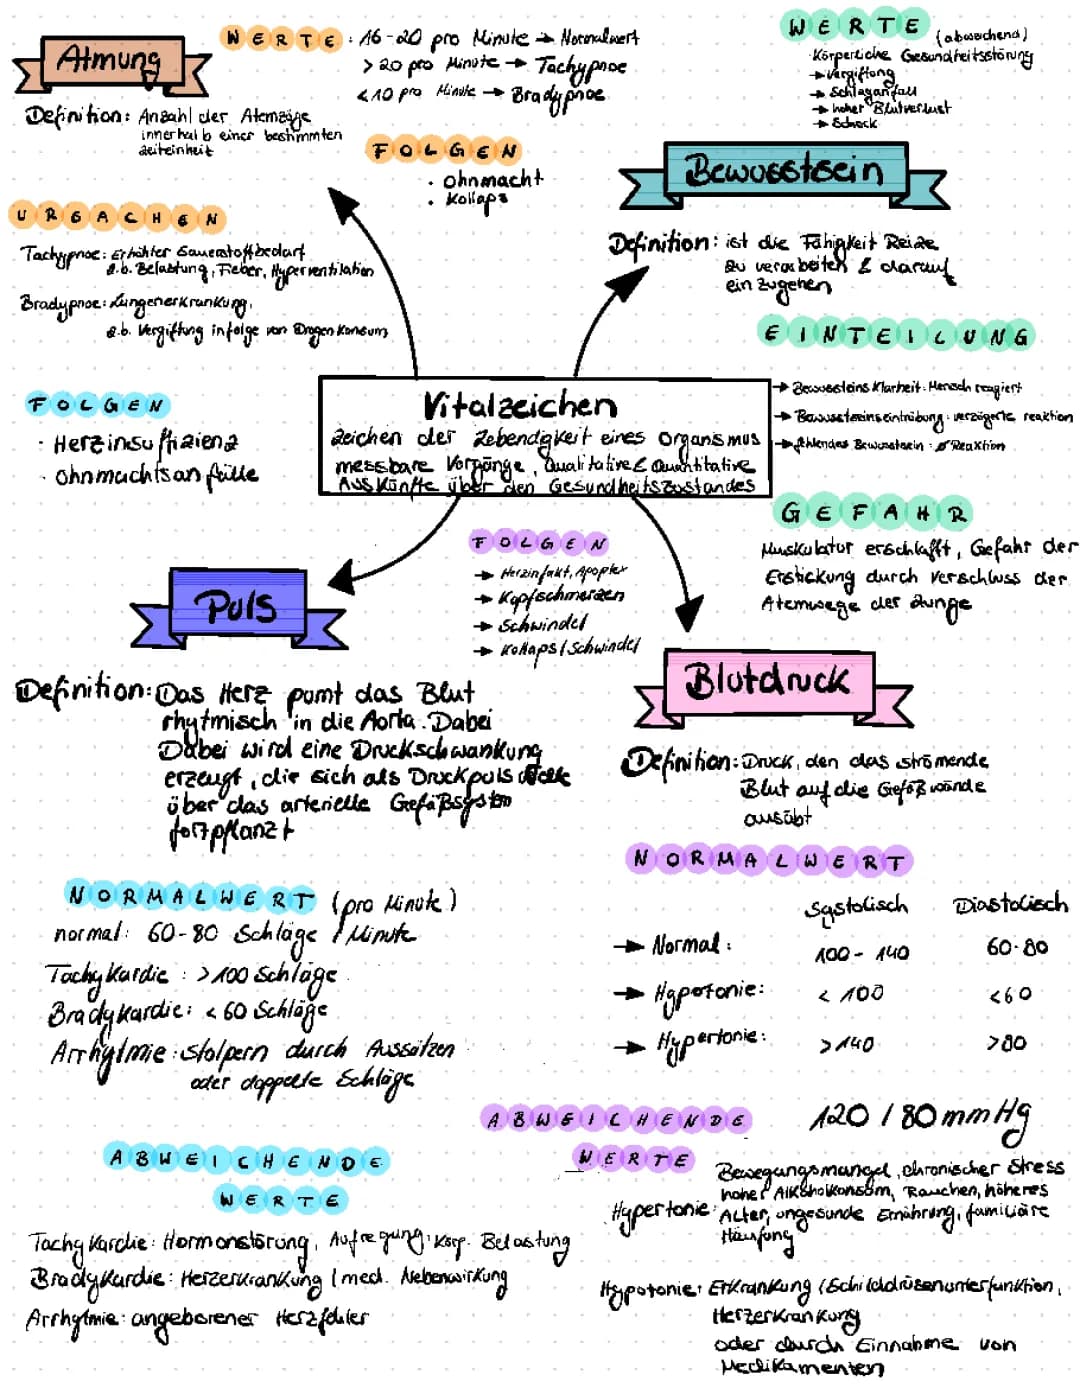 Atmung
WERTE: 16-20 pro Minute → Normalwert
> 20 pro Minute → Tachypnoe
< 10 pro Minute → Bradypnoe
Definition: Anzahl der Atemzüge
innerhalb einer bestimmten
Zeiteinheit
FOLGEN
· Ohnmacht
· Kollaps
URSACHEN
Tachypnoe: Erhöhter Sauerstoffbedarf
z.b. Belastung, Fieber, Hyperventilation
Bradypnoe: Lungenerkrankung,
z.b. Vergiftung infolge von Drogen Konsum
WERTE (abweichend)
· Körperliche Gesundheitsstörung
→ Vergiftung
→ Schlaganfall
→ hoher Blutverlust
→ Schock
Bewusstsein
Definition: ist die Fähigkeit Reize
zu verarbeiten & darauf
einzugehen
EINTEILUNG
→ Bewusstseins Klarheit: Mensch reagiert
→ Bewusstseinseintrübung: verzögerte reaktion
→ fehlendes Bewusstsein: Ø Reaktion
GEFAHR
Muskulatur erschlafft, Gefahr der
Erstickung durch Verschluss der
Atemwege der Zunge
Vitalzeichen
Zeichen der Lebendigkeit eines Organismus
messbare Vorgänge, Qualitative & Quantitative
Auskünfte über den Gesundheitszustandes
FOLGEN
· Herzinsuffizienz
· Ohnmachtsanfälle
Puls
Definition: Das Herz pumt das Blut
rhytmisch in die Aorta. Dabei
Dabei wird eine Druckschwankung
erzeugt, die sich als Druckpuls
über das arterielle Gefäßsystem
fortpflanzt
NORMALWERT (pro Minute)
normal: 60-80 Schläge / Minute
Tachykardie: >100 Schläge
Bradykardie: < 60 Schläge
Arrhytmie: stolpern durch Aussätzen
oder doppelte Schläge
ABWEICHENDE
WERTE
Tachykardie: Hormonstörung, Aufregung, Körp. Belastung
Bradykardie: Herzerkrankung / med. Nebenwirkung
Arrhytmie: angeborener Herzfehler
FOLGEN
→ Herzinfakt, Apoplex
→ Kopfschmerzen
→ Schwindel
→ Kollaps / Schwindel
Blutdruck
Definition: Druck, den das strömende
Blut auf die Gefäßwände
ausübt
NORMALWERT
Systolisch Diastolisch
→ Normal: 100-140 60-80
→ Hypotonie: < 100 <60
→ Hypertonie: >140 >80
120 / 80 mmHg
ABWEICHENDE
WERTE
Hypertonie: Bewegungsmangel, chronischer Stress
hoher Alkoholkonsum, Rauchen, höheres
Alter, ungesunde Ernährung, familiäre
Häufung
Hypotonie: Erkrankung (Schilddrüsenunterfunktion,
Herzerkrankung
oder durch Einnahme von
Medikamenten